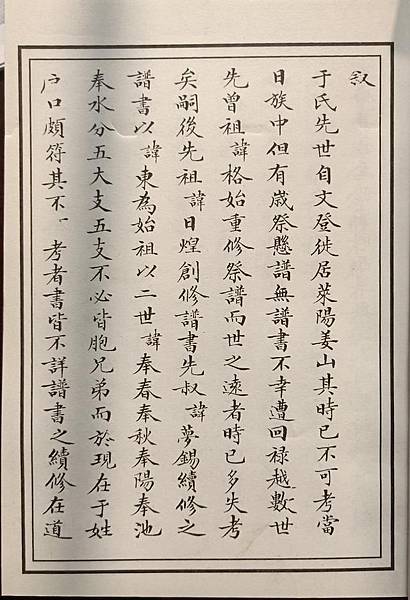 叙
于氏先世自文登徙居萊陽姜山其時已不可考當
日族中但有歲祭懸譜無譜書不幸遭回祿越數世
先曾祖諱格始重修祭譜而世之遠者時已多失考
矣嗣後先祖諱日煌創修譜書先叔諱夢錫續修之
譜書以諱東為始祖以二世諱奉春奉秋奉陽奉池
奉水分五大支五支不必皆胞兄弟而於現在于姓
戶口頗符其不一考者書皆不詳譜書之續修在道